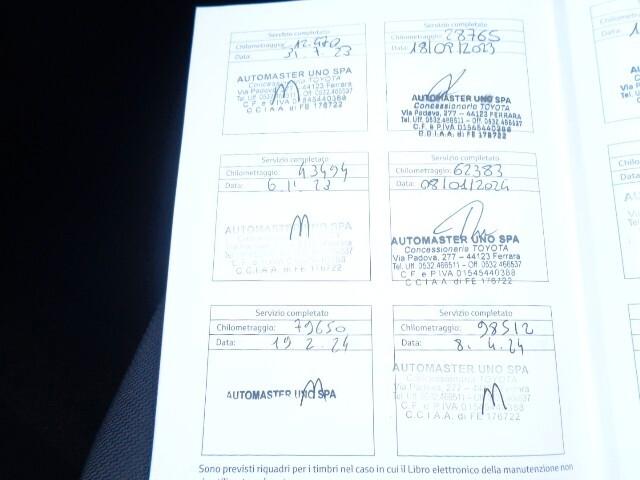 Servizio completato
Chilometraggio: 12.470
Data: 31.7.23
AUTOMASTER UNO SPA
Concessionaria TOYOTA
Via Padova, 277 – 44123 Ferrara
C.F. e P.IVA 01545440388
C.C.I.A.A. di FE 176722
Servizio completato
Chilometraggio: 28765
Data: 18/09/2023
AUTOMASTER UNO SPA
Concessionaria TOYOTA
Via Padova, 277 – 44123 FERRARA
Tel. Uff. 0532.466511 – Off. 0532.466537
C.F. e P.IVA 01545440388
C.C.I.A.A. di FE 176722
Servizio completato
Chilometraggio: 43494
Data: 6.11.23
AUTOMASTER UNO SPA
C.C.I.A.A. di FE 176722
Servizio completato
Chilometraggio: 62383
Data: 08/01/2024
AUTOMASTER UNO SPA
Concessionaria TOYOTA
Via Padova, 277 – 44123 Ferrara
Tel. Uff. 0532 466511 – Off. 0532 466537
C.F. e P.IVA 01545440388
C.C.I.A.A. di FE 176722
Servizio completato
Chilometraggio: 79650
Data: 19.2.24
AUTOMASTER UNO SPA
Servizio completato
Chilometraggio: 98512
Data: 8.4.24
AUTOMASTER UNO SPA
Concessionaria TOYOTA
Via Padova, 277 – 44123 Ferrara
C.C.I.A.A. di FE 176722
Sono previsti riquadri per i timbri nel caso in cui il Libro elettronico della manutenzione non